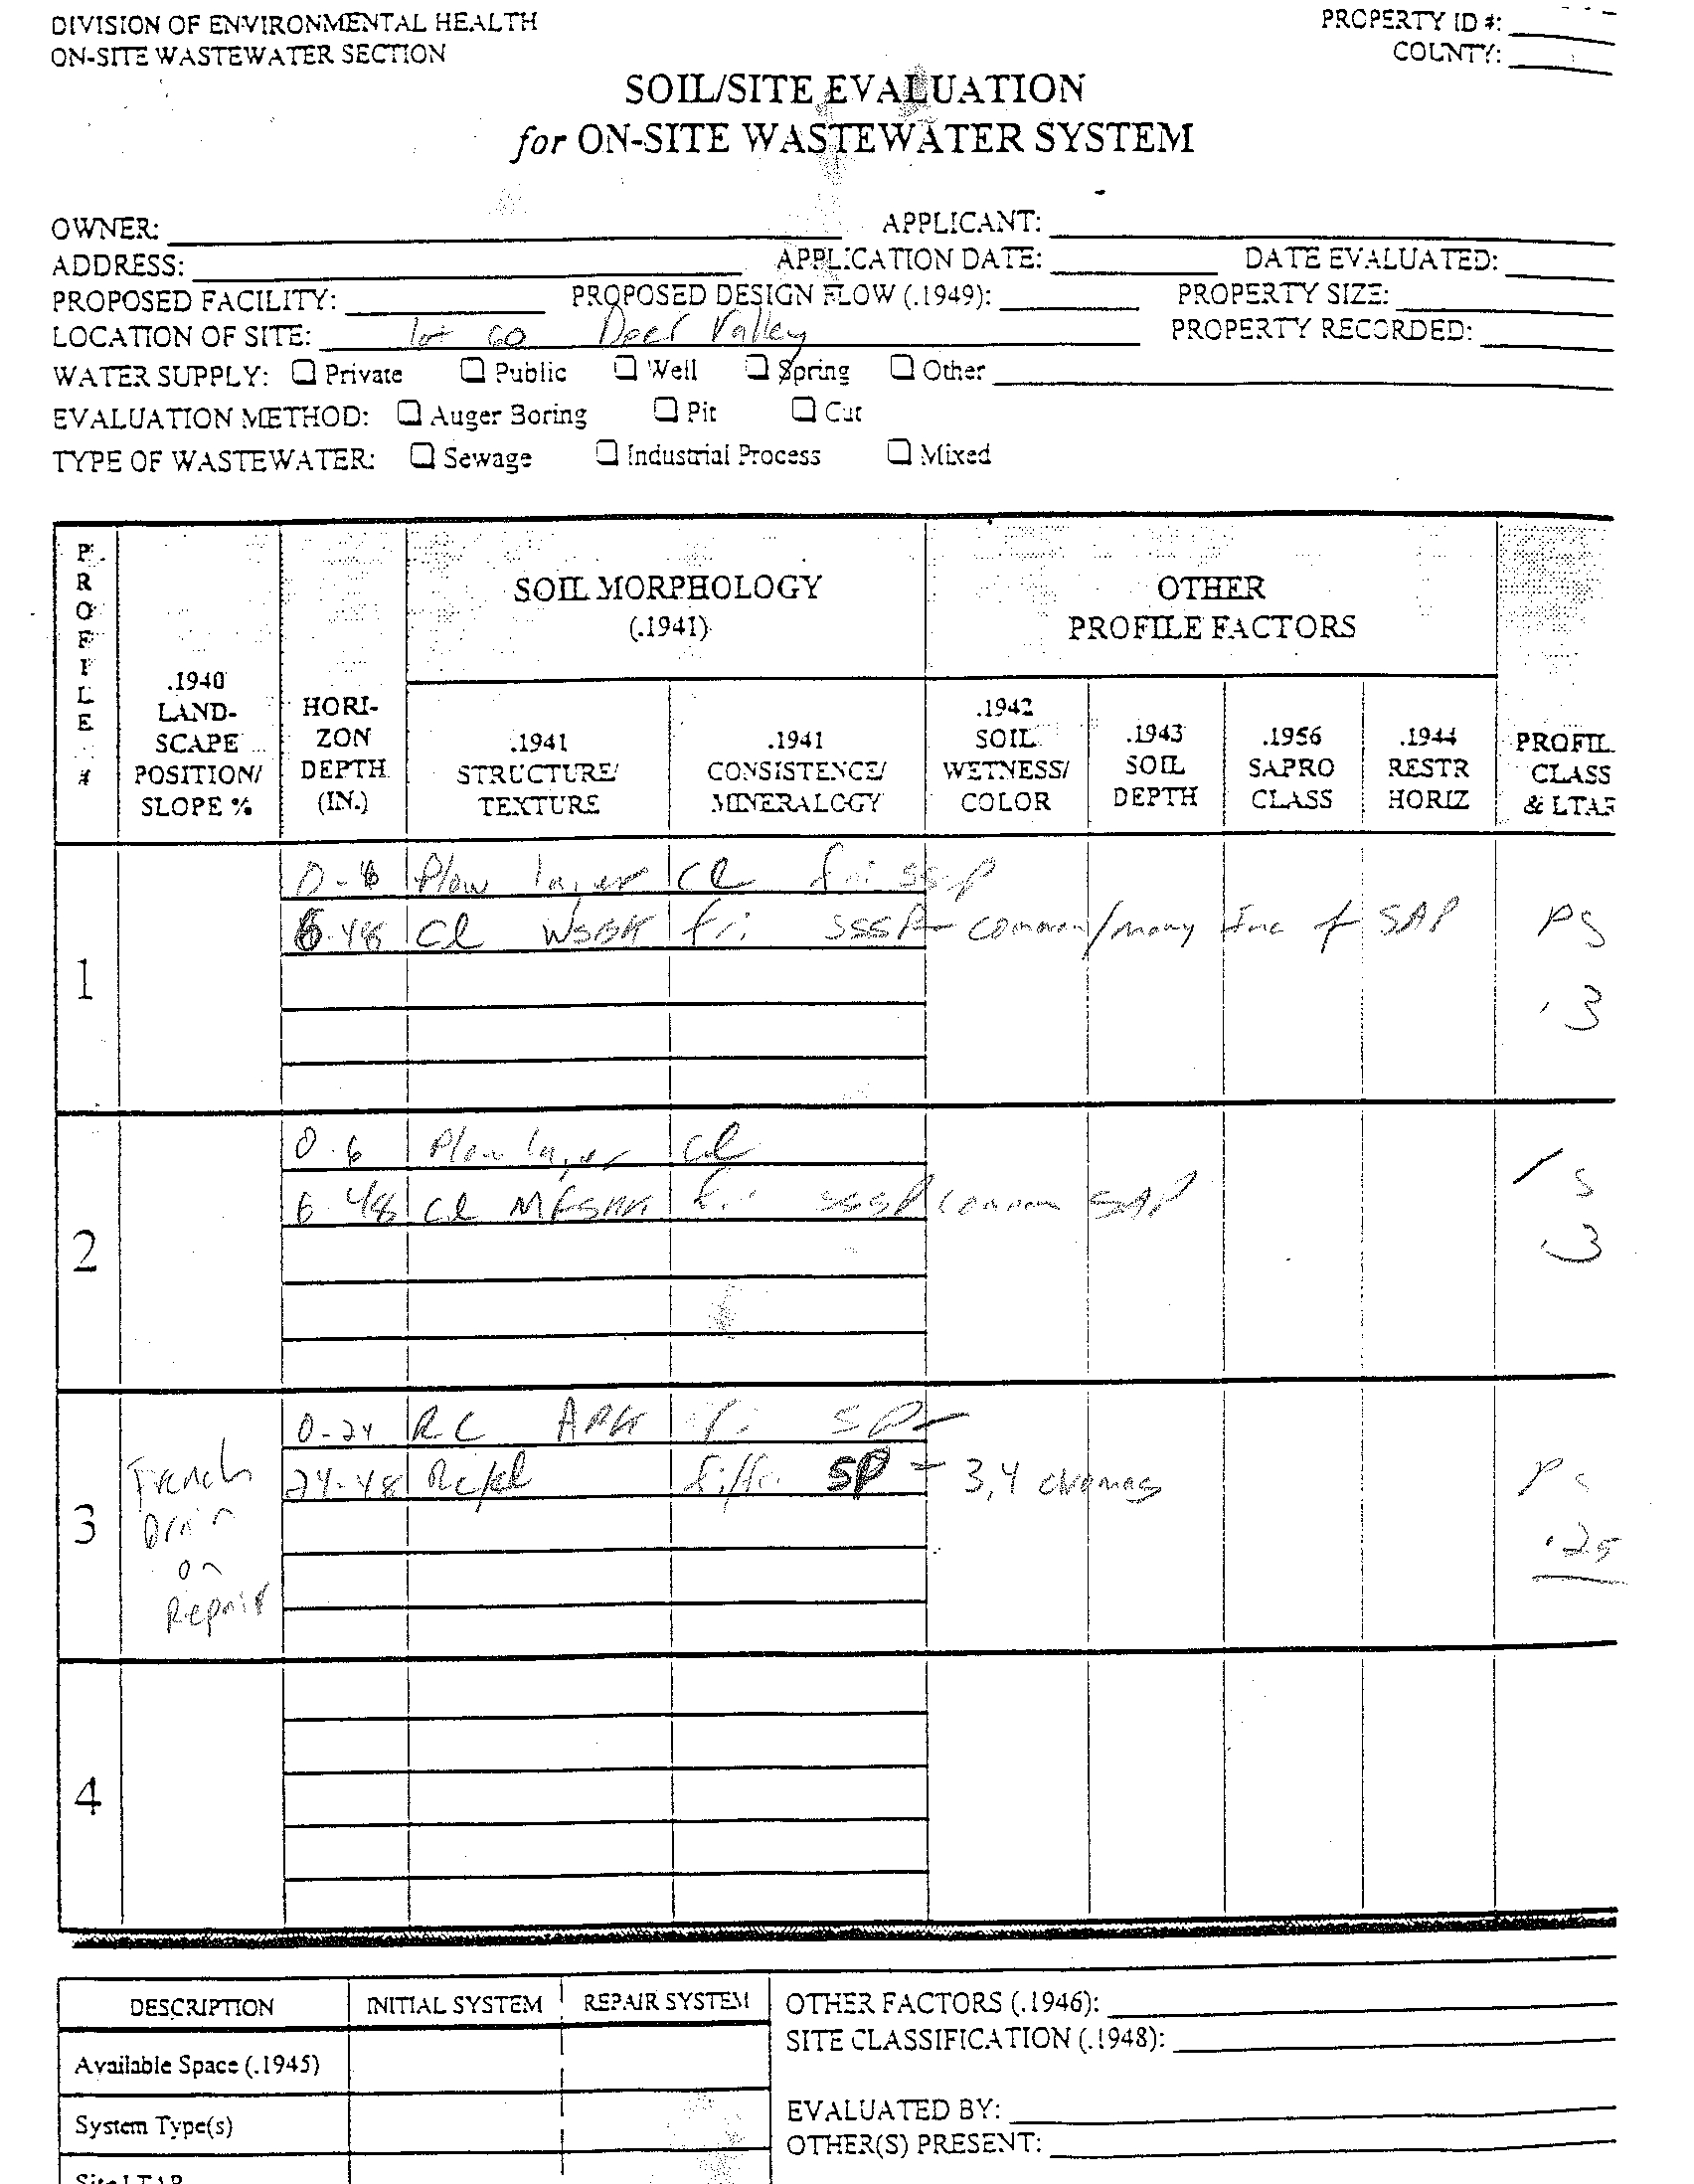 DIVISION OF ENVIRONMENTAL HEALTH
ON-SITE WASTEWATER SECTION
PROPERTY ID #:
COUNTY:
SOIL/SITE EVALUATION
for ON-SITE WASTEWATER SYSTEM
OWNER: APPLICANT:
ADDRESS: APPLICATION DATE: DATE EVALUATED:
PROPOSED FACILITY: PROPOSED DESIGN FLOW (.1949): PROPERTY SIZE:
LOCATION OF SITE: lot 60 Deer Valley PROPERTY RECORDED:
WATER SUPPLY: Private Public Well Spring Other
EVALUATION METHOD: Auger Boring Pit Cut
TYPE OF WASTEWATER: Sewage Industrial Process Mixed
PROFILE #
.1940 LAND-SCAPE POSITION/ SLOPE %
HORI-ZON DEPTH (IN.)
SOIL MORPHOLOGY
(.1941)
.1941 STRUCTURE/ TEXTURE
.1941 CONSISTENCE/ MINERALOGY
OTHER
PROFILE FACTORS
.1942 SOIL WETNESS/ COLOR
.1943 SOIL DEPTH
.1956 SAPRO CLASS
.1944 RESTR HORIZ
PROFIL CLASS & LTAR
1
0-6 Plow layer CL fri SSP
6-48 CL WSBK fri SSSP common/many Inc of SAP PS
.3
2
0-6 Plow layer CL
6-48 CL fri SSSP common SAP S
.3
3
0-24 RC fri SP
24-48 SP - 3,4 chromas PS
French
Drain
on
Repair
.25
4
DESCRIPTION INITIAL SYSTEM REPAIR SYSTEM
Available Space (.1945)
System Type(s)
Site LTAR
OTHER FACTORS (.1946):
SITE CLASSIFICATION (.1948):
EVALUATED BY:
OTHER(S) PRESENT: